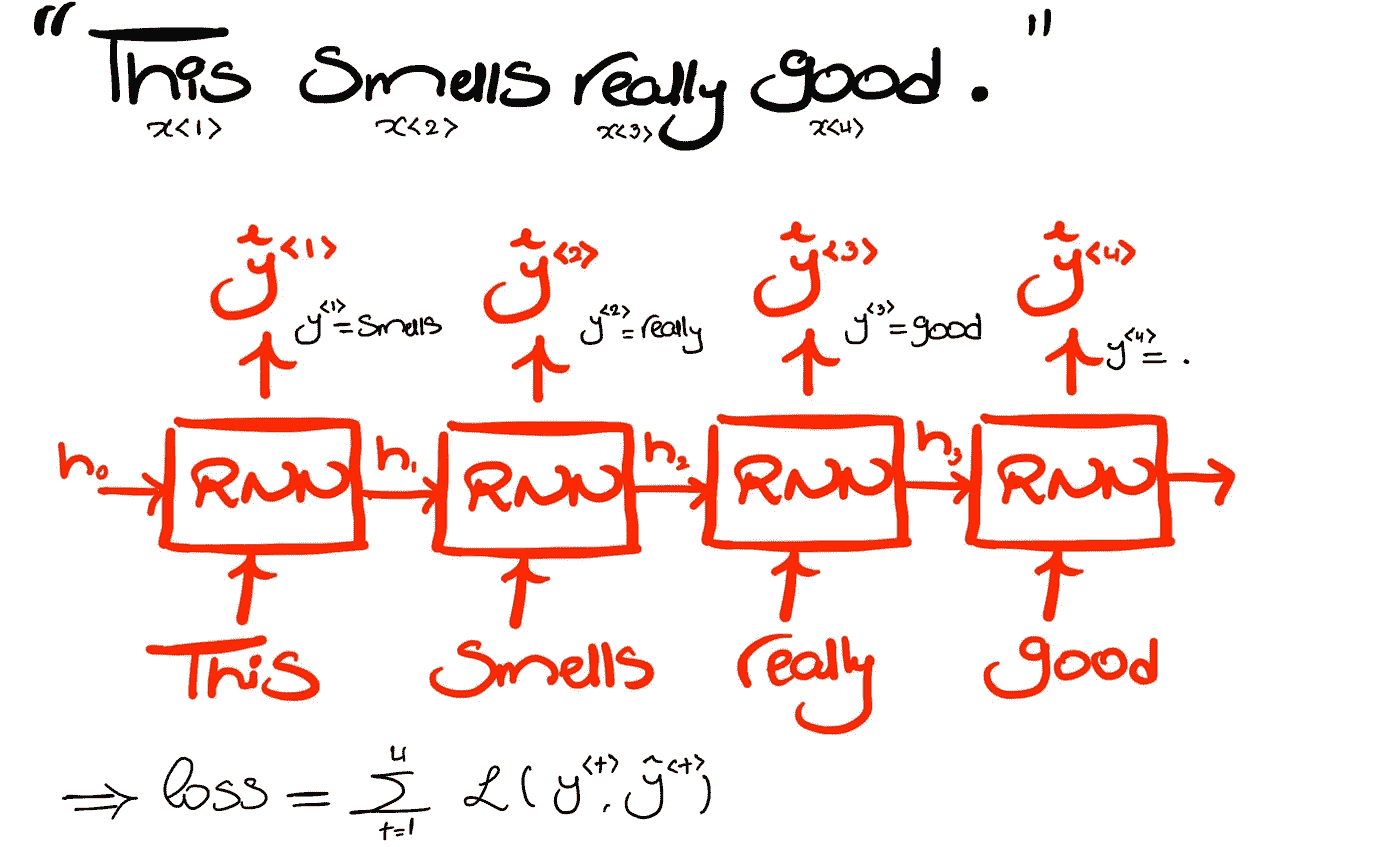 "This smells really good."
x<1> x<2> x<3> x<4>
ŷ<1> ŷ<2> ŷ<3> ŷ<4>
y<1>=smells y<2>=really y<3>=good y<4>= .
h₀ RNN h₁ RNN h₂ RNN h₃ RNN
This smells really good
⇒ loss = Σ t=1 4 ℒ(y<t>, ŷ<t>)